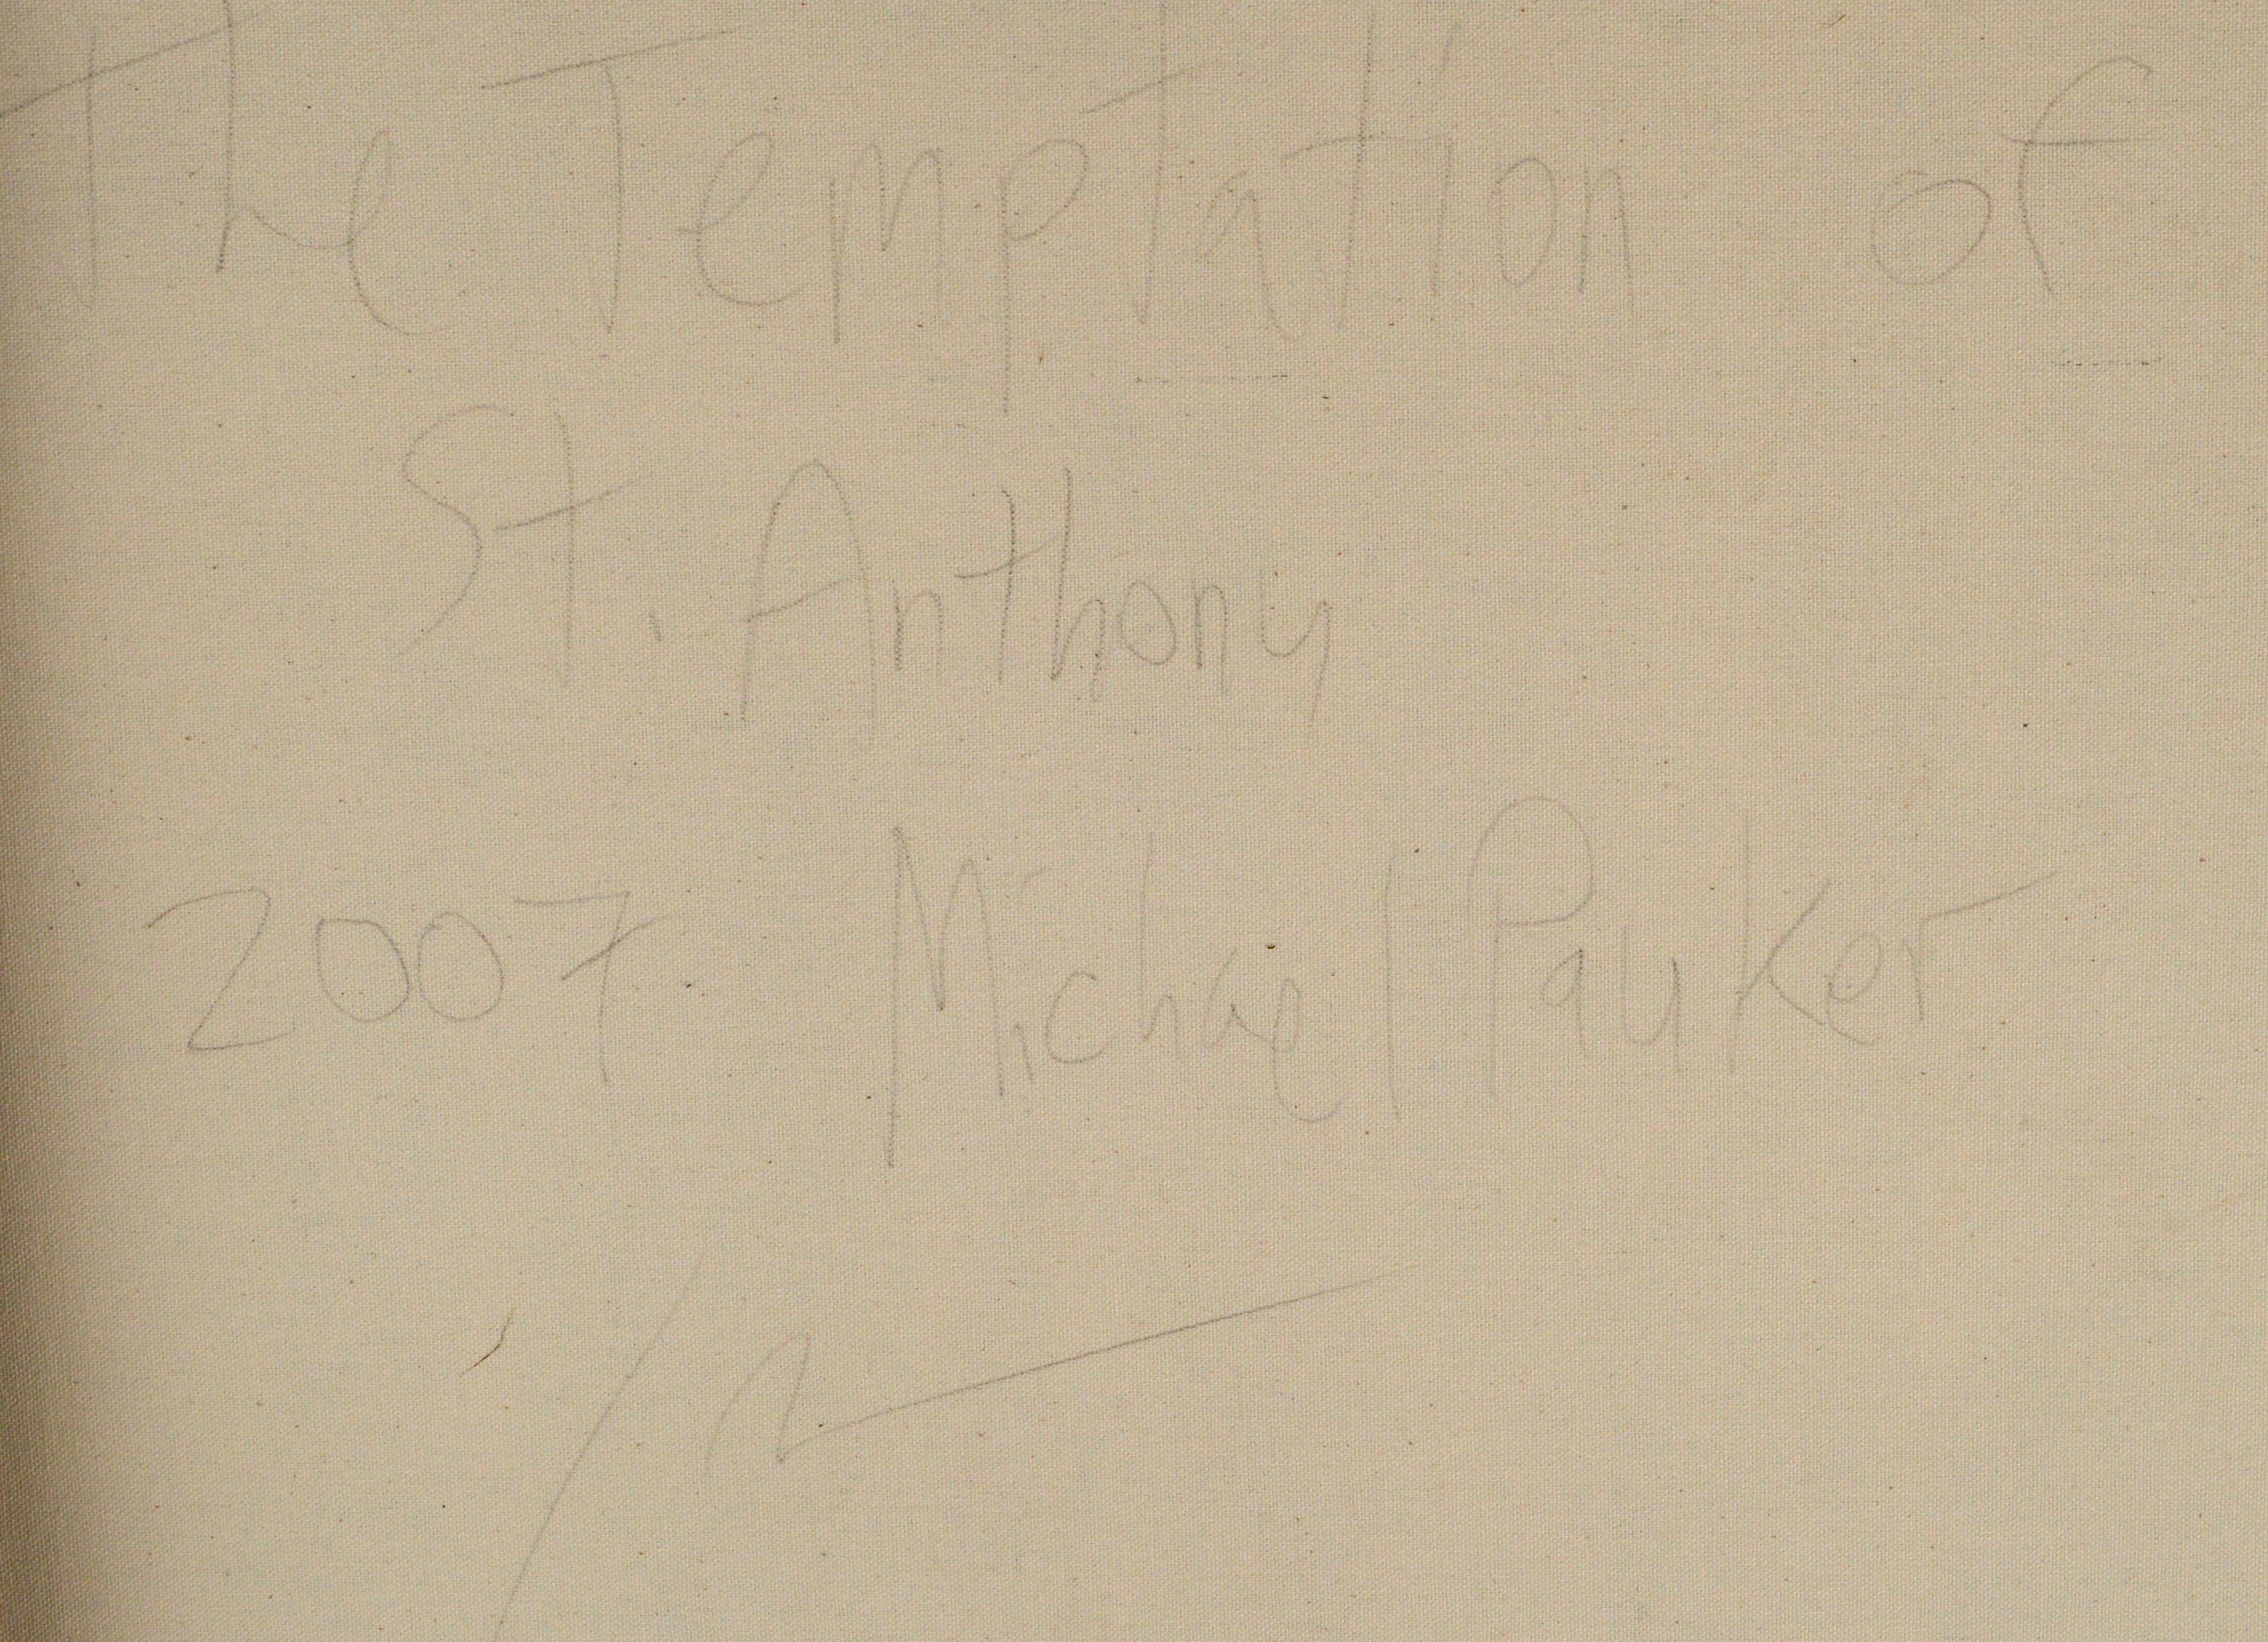 The Temptation of
St. Anthony
2007 Michael Pauker